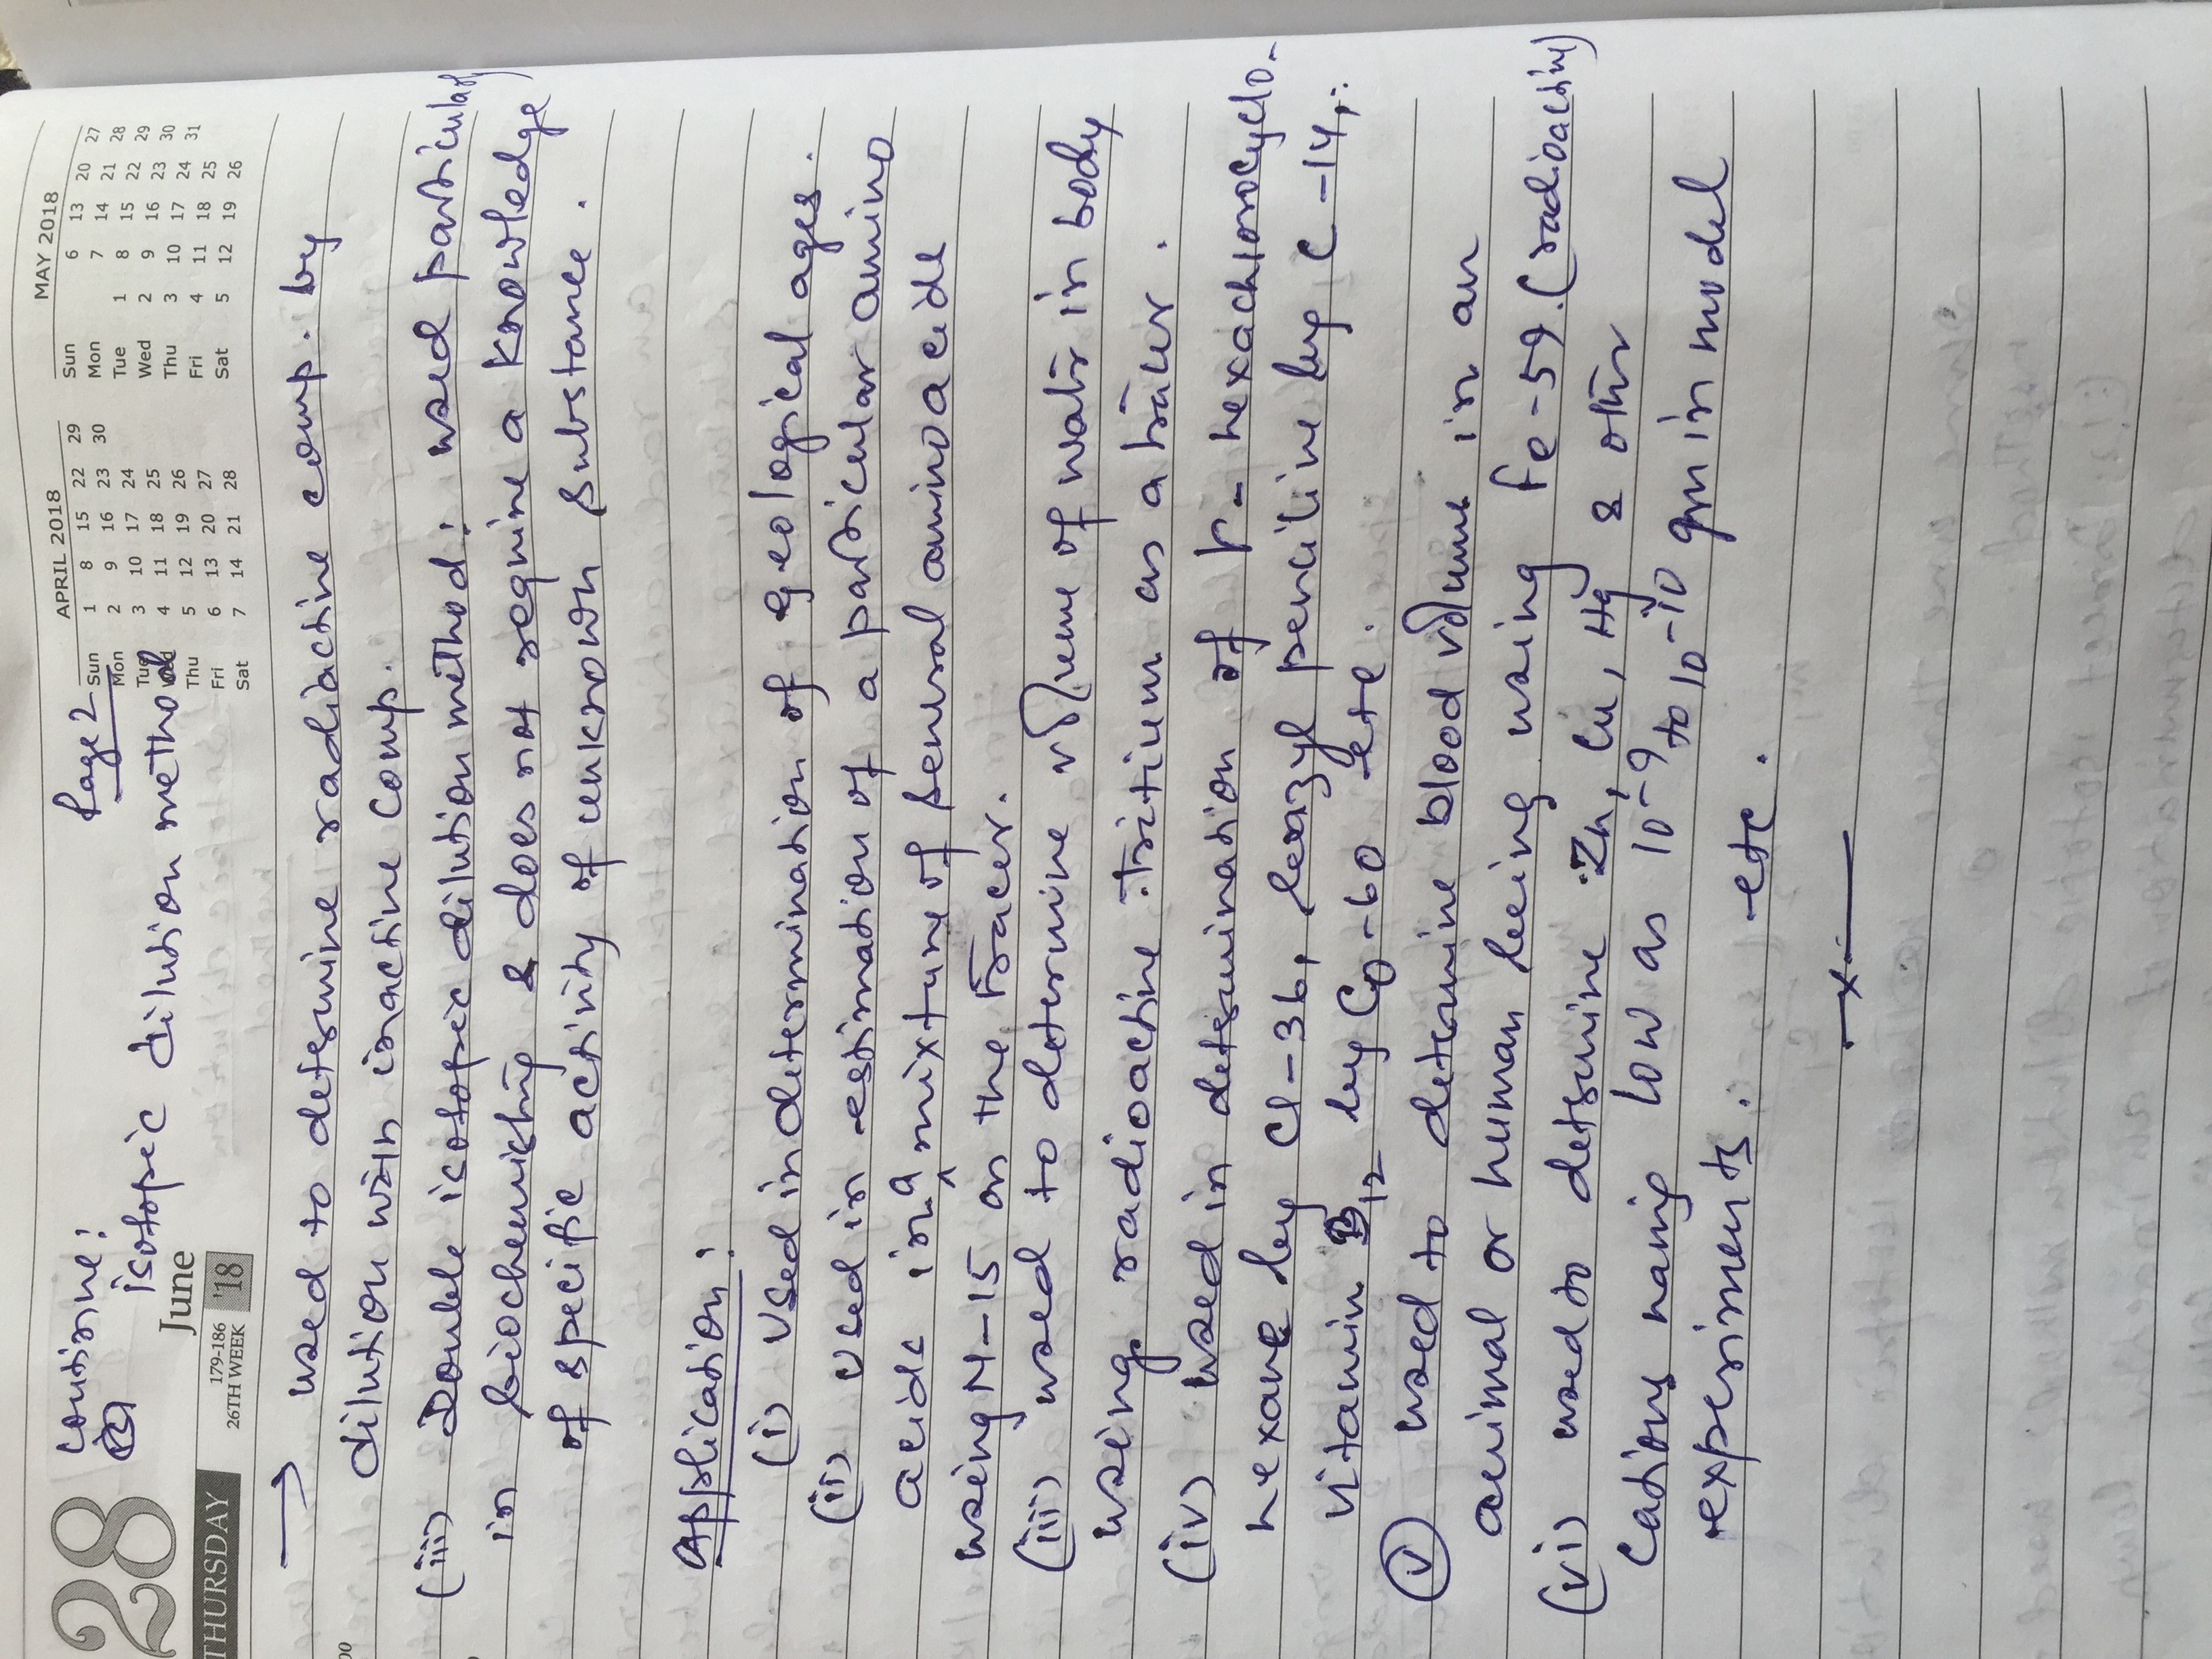 28
THURSDAY
continue!
isotopic dilution method
June
179-186
26TH WEEK
'18
Page 2
APRIL 2018
Sun 1 8 15 22 29
Mon 2 9 16 23 30
Tue 3 10 17 24
Wed 4 11 18 25
Thu 5 12 19 26
Fri 6 13 20 27
Sat 7 14 21 28
MAY 2018
Sun 6 13 20 27
Mon 7 14 21 28
Tue 1 8 15 22 29
Wed 2 9 16 23 30
Thu 3 10 17 24 31
Fri 4 11 18 25
Sat 5 12 19 26
→ used to determine radiactive comp. by
dilution with inactive comp.
(iii) Double isotopic dilution method: used particularly
in biochemistry & does not require a knowledge
of specific activity of unknown substance.
Application:
(i) Used in determination of geological ages.
(ii) Used in estimation of a particular amino
acids in a mixture of several amino acids
using N-15 as the Tracer.
(iii) used to determine volume of water in body
using radioactive Tritium as a tracer.
(iv) used in determination of r-hexachlorocyclo-
hexane by Cl-36, penicilline by C-14,
vitamin B12 by Co-60 etc.
(v) used to determine blood volume in an
animal or human being using Fe-59. (radioactive)
(vi) used to determine Zn, Cu, Hg & other
Cations having low as 10-9 to 10-10 gm in model
experiments. etc.
—x—